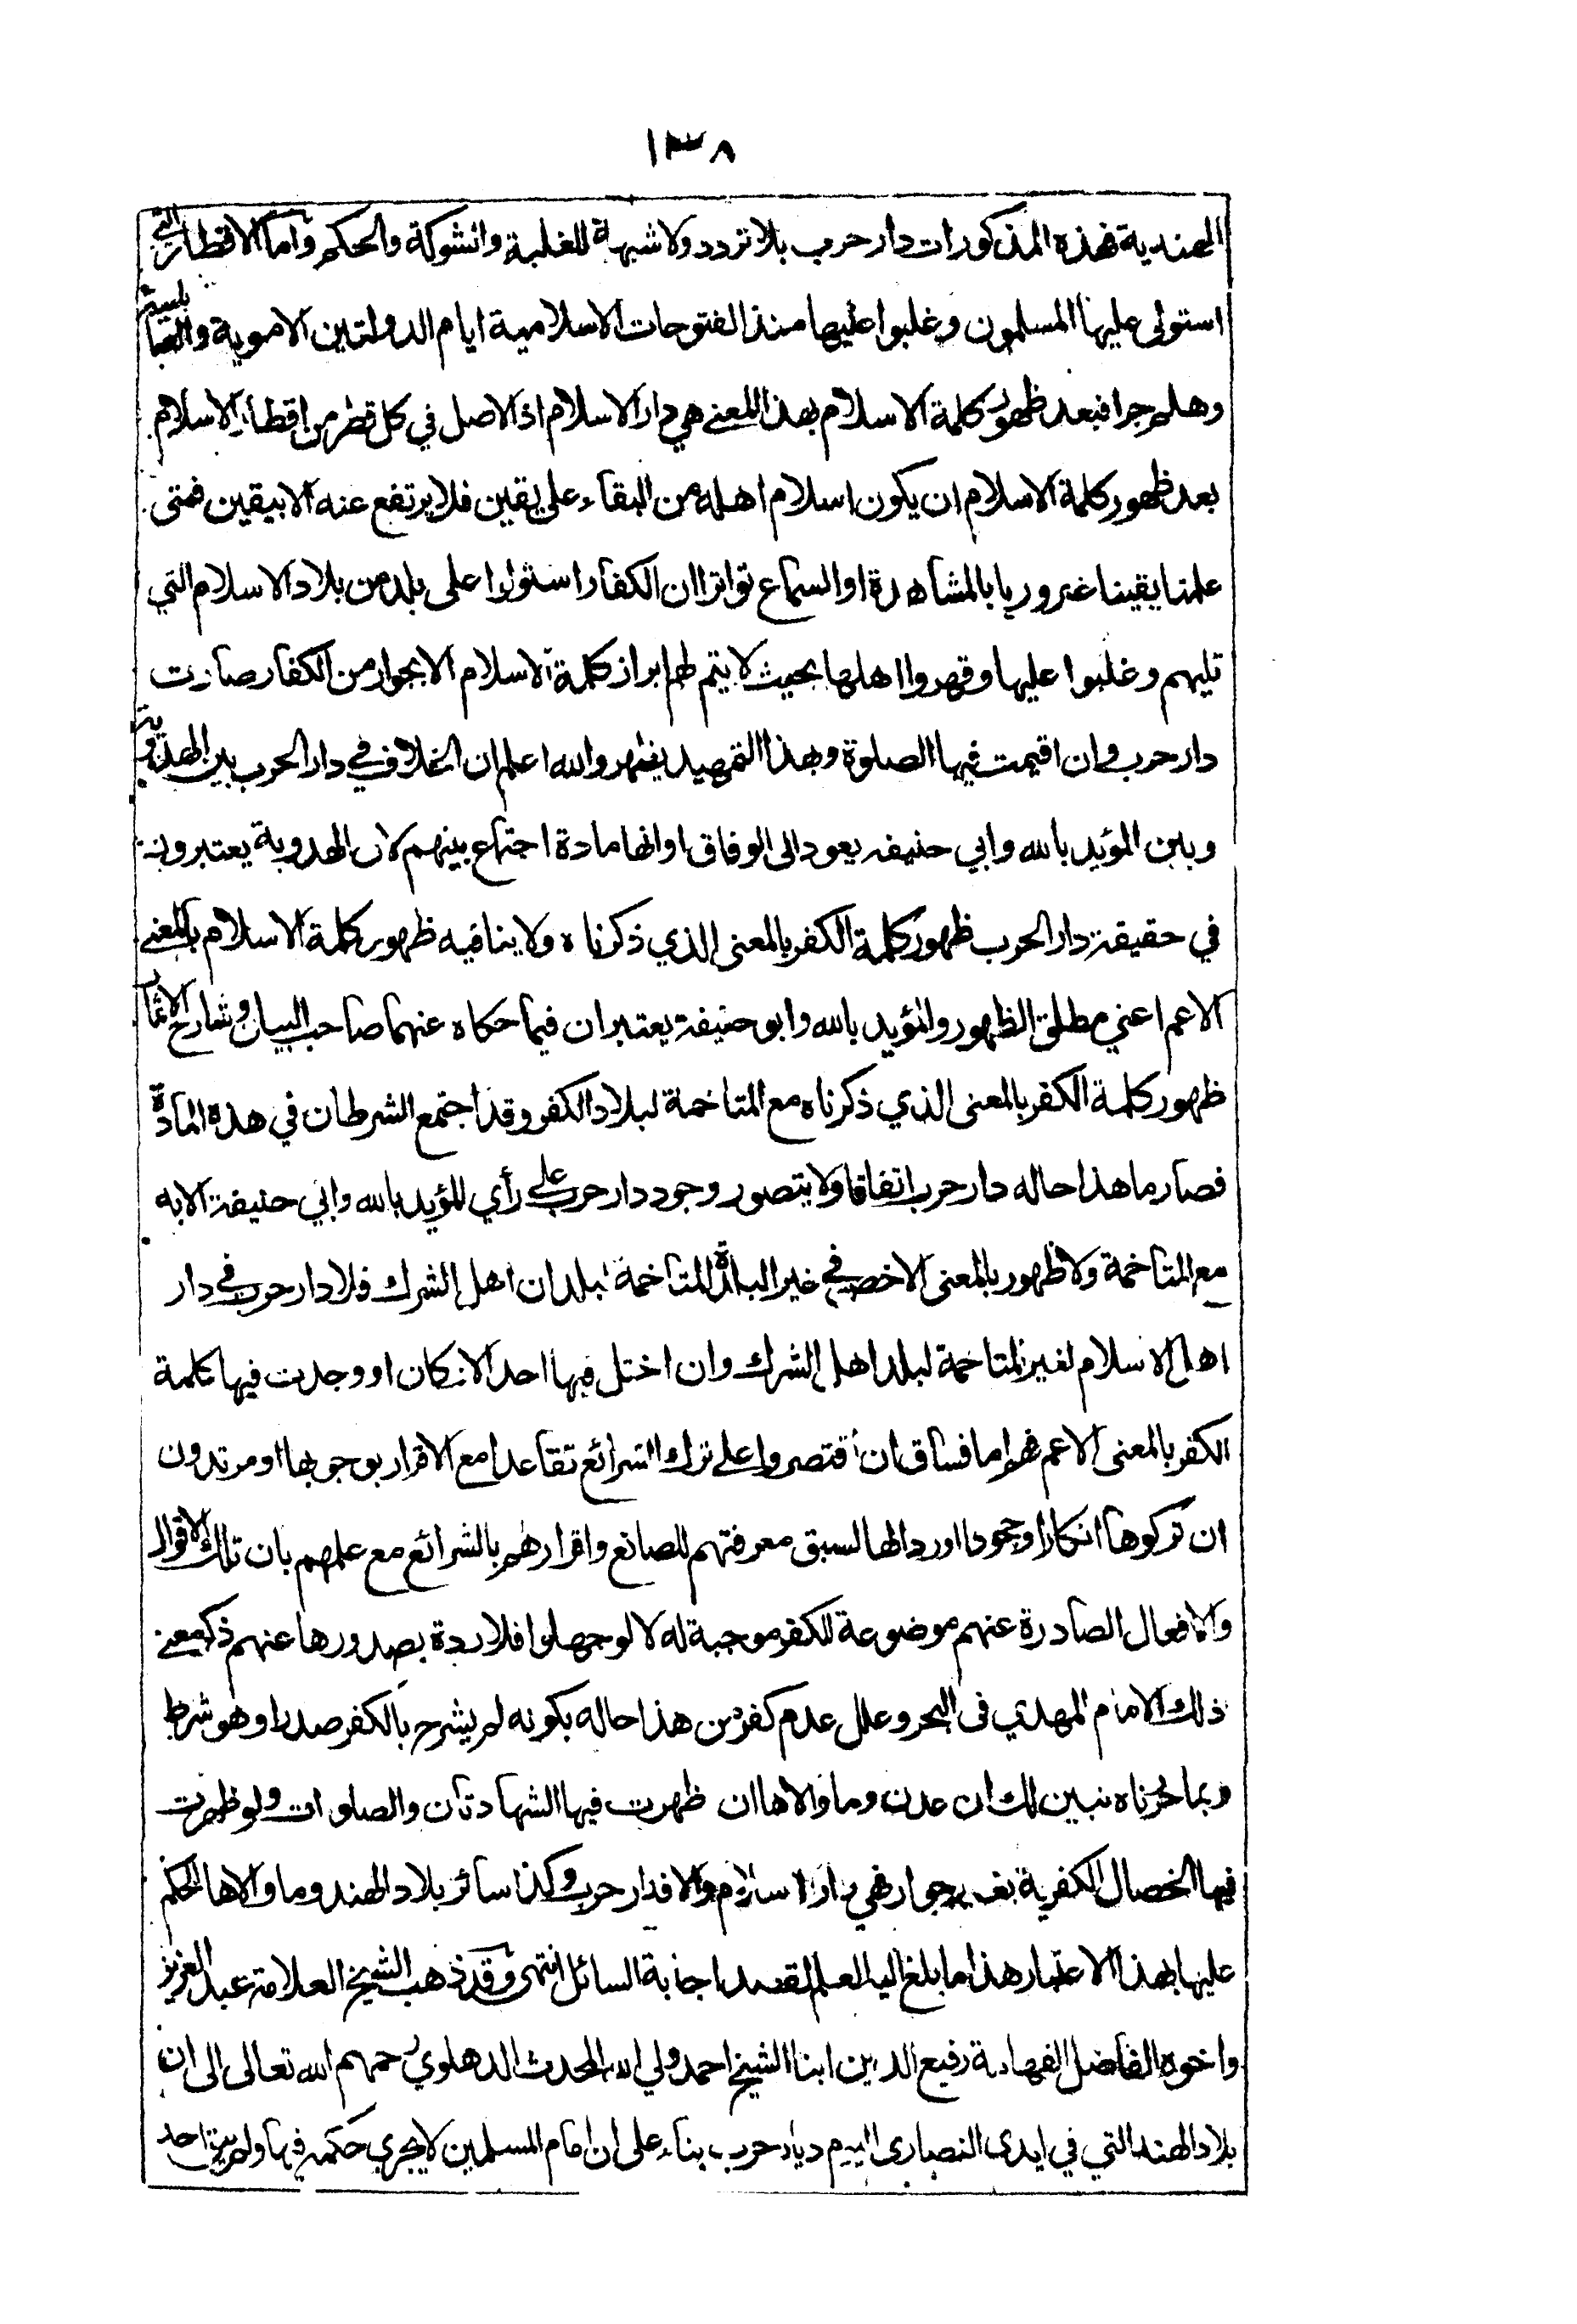 ١٣٨
الهندية فهذه المذكورات دار حرب بلا تردد ولا شبهة للغلبة والشوكة والحكم وأما الاقطار التي
استولى عليها المسلمون وغلبوا عليها منذ الفتوحات الاسلامية ايام الدولتين الاموية والعباسية
وهلم جرا فبعد ظهور كلمة الاسلام بهذا المعنى هي دار الاسلام اذ الاصل في كل قطر من اقطار الاسلام
بعد ظهور كلمة الاسلام ان يكون اسلام اهله من البقاء على يقين فلا يرتفع عنه الا بيقين فمتى
علمنا يقينا ضروريا بالمشاهدة او السماع تواترا ان الكفار استولوا على بلد من بلاد الاسلام التي
تليهم وغلبوا عليها وقهروا اهلها بحيث لا يتم لهم ابراز كلمة الاسلام الا بجوار من الكفار صارت
دار حرب وان اقيمت فيها الصلوة وبهذا التمهيد يظهر والله اعلم ان الخلاف في دار الحرب بين الهدوية
وبين المؤيد بالله وابي حنيفه يعود الى الوفاق او انها مادة اجتماع بينهم لان الهدوية يعتبرون
في حقيقة دار الحرب ظهور كلمة الكفر بالمعنى الذي ذكرناه ولا ينافيه ظهور كلمة الاسلام بالمعنى
الاعم اعني مطلق الظهور والمؤيد بالله وابو حنيفة يعتبران فيما حكاه عنهما صاحب البيان وشارح الاثمار
ظهور كلمة الكفر بالمعنى الذي ذكرناه مع المتاخمة لبلاد الكفر وقد اجتمع الشرطان في هذه المادة
فصار ما هذا حاله دار حرب اتفاقا ولا يتصور وجود دار حرب على رأي المؤيد بالله وابي حنيفة الا به
مع المتاخمة ولا ظهور بالمعنى الاخص في غير البلدة المتاخمة لبلدان اهل الشرك فلا دار حرب في دار
اهل الاسلام لغير المتاخمة لبلد اهل الشرك وان اختل فيها احد الاركان او وجدت فيها كلمة
الكفر بالمعنى الاعم فهم اما فساق ان اقتصروا على ترك الشرائع تقاعدا مع الاقرار بوجوبها او مرتدون
ان تركوها انكارا وجحودا او ردا لها لسبق معرفتهم للصانع واقرارهم بالشرائع مع علمهم بان تلك الاقوال
والافعال الصادرة عنهم موضوعة للكفر موجبة له لا لو جهلوا فلا ردة بصدورها عنهم ذكر معنى
ذلك الامام المهدي في البحر وعلل عدم كفر من هذا حاله بكونه لم يشرح بالكفر صدرا وهو شرط
وبما حررناه تبين لك ان عدن وما والاها ان ظهرت فيها الشهادتان والصلوات ولو ظهرت
فيها الخصال الكفرية بغير جوار فهي دار اسلام والا فدار حرب وكذا سائر بلاد الهند وما والاها الحكم
عليها بهذا الاعتبار هذا ما بلغ اليه العلم لقصد اجابة السائل انتهى وقد ذهب الشيخ العلامة عبد العزيز
واخوه الفاضل الفهامة رفيع الدين ابنا الشيخ احمد ولي الله المحدث الدهلوي رحمهم الله تعالى الى ان
بلاد الهند التي في ايدى النصارى اليوم ديار حرب بناء على ان امام المسلمين لا يجري حكمه فيها ولم يبق احد